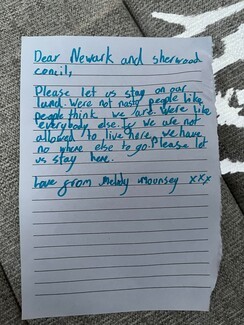 Dear Newark and sherwood
concil,
Please let us stay on our
land. Were not nasty people like
people think we are. Were like
everybody else. If we are not
allowed to live here, we have
no where else to go. Please let
us stay here.
Love from Melody Mounsey xxx